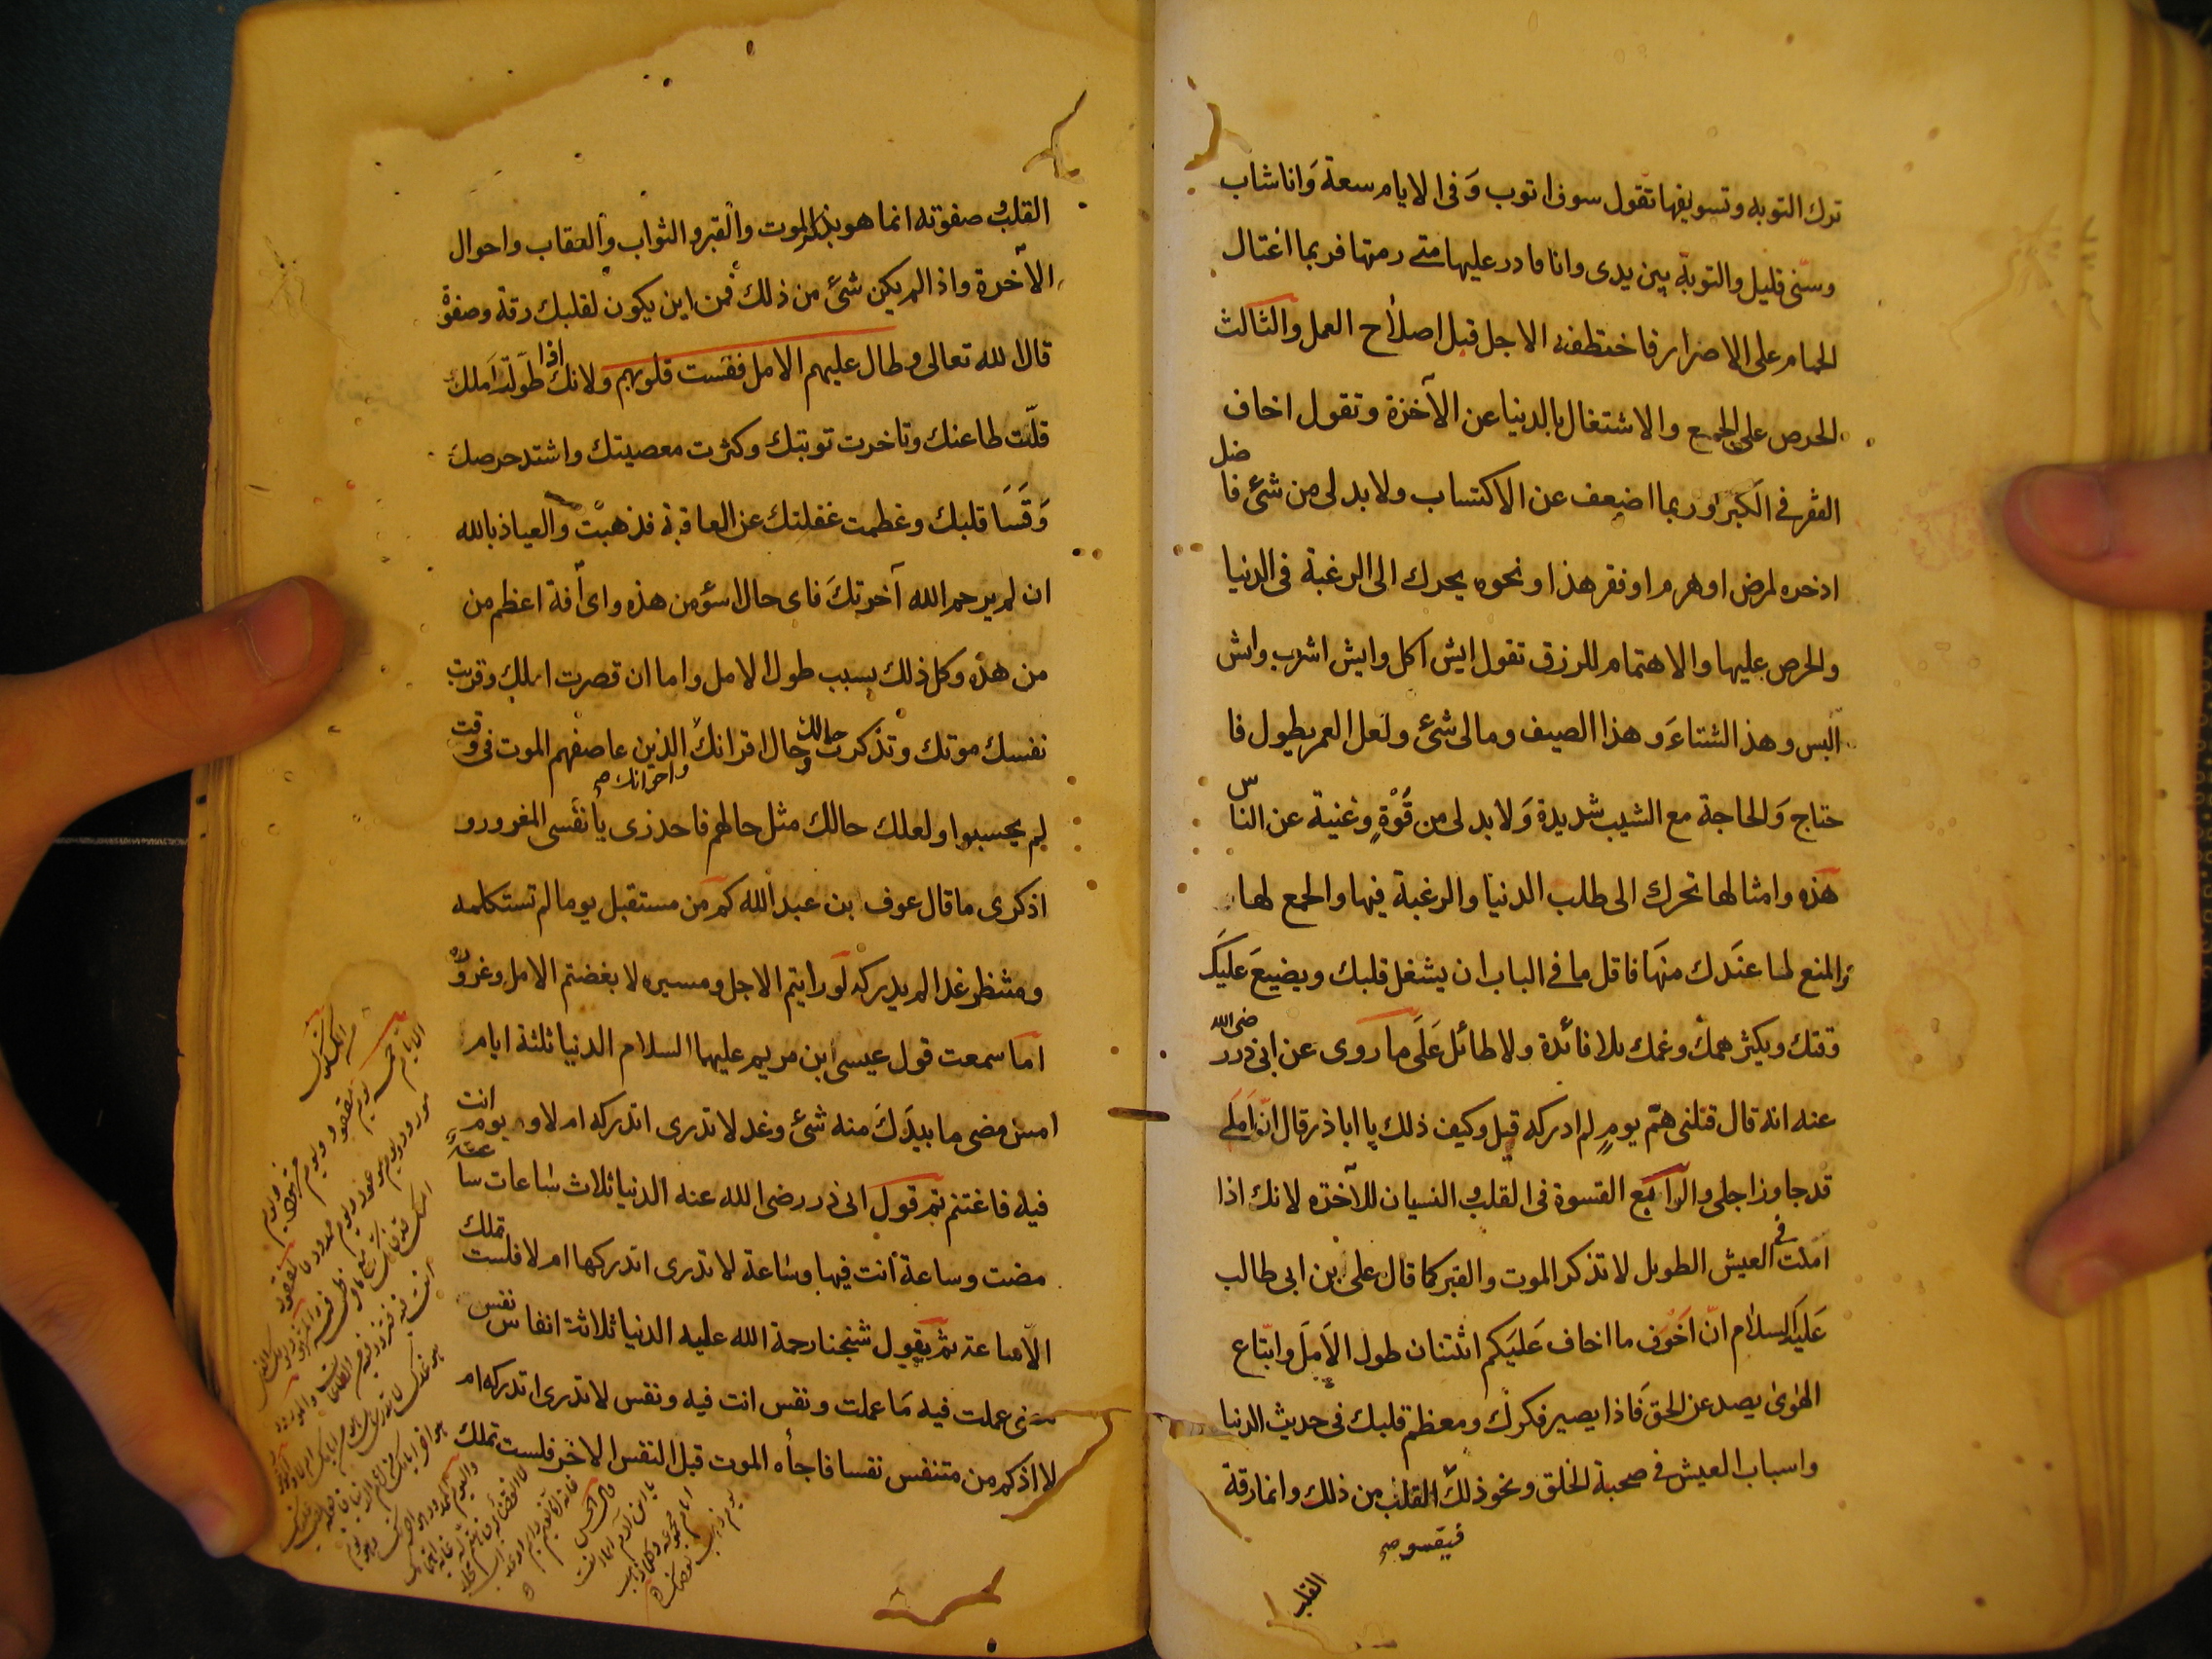 ترك التوبه وتسويفها تقول سوف اتوب وَفى الايام سعة وَانا شاب
وسنّى قليل والتوبة بين يدى وانا قادر عليها متى رمتها فربما اغتال
الحمام على الاصرار فاختطفه الاجل قبل اصلاح العمل والثالث
الحرص على الجمع والاشتغال بالدنيا عن الآخزة وتقول اخاف
الفقر فى الكَبَر وربما اضعف عن الاكتساب ولا بد لى من شئ فاضل
ادخره لمرض او هرم او فقر هذا ونحوه يحرك الى الرغبة فى الدنيا
والحرص عليها والاهتمام للرزق تقول ايش اكل وايش اشرب وايش
البس وهذ الشتاءَ وهذا الصيف ومالى شئ ولعل العمر يطول فا
حتاج وَالحاجة مع الشيب شديدة وَلا بد لى من قُوّةٍ وغنية عن الناس
هذه وامثالها تحرك الى طلب الدنيا والرغبة فيها والجمع لها
والمنع لما عندك منهَا فاقل ما فى الباب ان يشغل قلبك ويضيعَ عَليكَ
وقتك ويكثر همك وغمك بلا فائدة ولا طائل عَلَى ما روى عن ابى ذرر ضى الله
عنه انه قال قتلنى همّ يومٍ لم ادركه قيل وكيف ذلك يا اباذر قال انّ اَمَلَى
قد جاوز اجلى والرابع القسوة فى القلب والنسيان للآخرٓه لانك اذا
املت فى العيش الطويل لا تذكر الموت والقبر كما قال على بن ابى طالب
عَليَه السلام انّ اَخَوْف ما اخاف عَليَكم اثنتنان طول الاَمَل واتّباع
الهوىٰ يصد عن الحق فَاذا يصير فكرك ومعظم قلبك فى حديث الدنيا
واسباب العيش فى صحبة الخلق ونحو ذلك القلب من ذلك وانما رقة
فيقسو صح
القلب
القلبُ صفوته انما هو بذكر الموت والقبر والثواب والعقاب واحوال
الآخرة واذا لم يكن شئ من ذلك فمن اين يكون لقلبك رقة وصفوة
قال الله تعالى وطال عليهم الامل فقست قلوبهم ولانك اذا طَولتَ اَملك
قلّت طاعتك وتاخرت توبتك وكثرت معصيتك واشتد حرصك
وَقَسَا قلبك وعظمت غفلتك عن العاقبة فذهبت والعياذ بالله
ان لم يرحم الله آخرتكَ فاى حال اسؤ من هذه واى آفة اعظم من
من هذه وكل ذلك بسبب طول الامل واما ان قصرت املك وقربت
نفسك موتك وتذكرت حالك وحال اقرانك الذين عاصفهم الموت فى وقت
واخوانك صح
لم يحسبوا ولعلك حالك مثل حالهم فاحذرى يا نفسى المغرور و
اذكرى ما قال عوف بن عبد الله كم من مستقبل يوما لم تستكمله
ومنتظر غدا لم يدركه لو رايتم الاجل ومسيره لا بغضتم الامل وغروره
اما سمعت قول عيسى ابن مريم عليهما السلام الدنيا ثلثة ايام
امس مضى ما بيدَكَ منه شئ وغد لا تدرى اتدركه ام لا ويوم انت
فيه فاغتنم ثم قول ابى ذر رضى الله عنه الدنيا ثلاث ساعات ساعة
مضت وساعة أنت فيها وساعة لا تدرى اتدركها ام لا فلست تملك
الا ساعة ثم يقول شيخنا رحمة الله عليه الدنيا ثلاثة انفاس نفس
مضى عملت فيه مَا عملت ونفس انت فيه ونفس لا تدرى اتدركه ام
لا اذ كم من متنفس نفسا فاجأه الموت قبل النفس الاخر فلست تملك